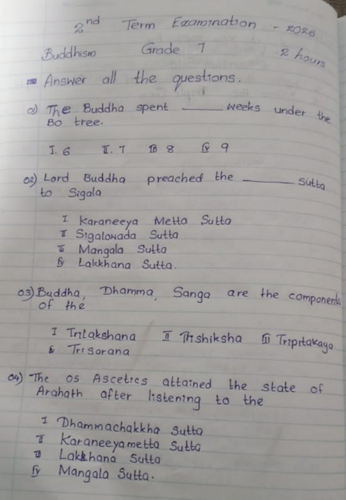 2nd Term Examination - 2026
Buddhism Grade 7 2 hours
Answer all the questions.
01) The Buddha spent ______ weeks under the
Bo tree.
I. 6 II. 7 III 8 IV 9
02) Lord Buddha preached the ______ sutta
to Sigala
I Karaneeya Metta Sutta
II Sigalowada Sutta
III Mangala Sutta
IV Lakkhana Sutta.
03) Buddha, Dhamma, Sanga are the components
of the
I Trilakshana II Trishiksha III Tripitakaya
IV Trisarana
04) The 05 Ascetics attained the state of
Arahath after listening to the
I Dhammachakkha Sutta
II Karaneeyametta Sutta
III Lakkhana Sutta
IV Mangala Sutta.